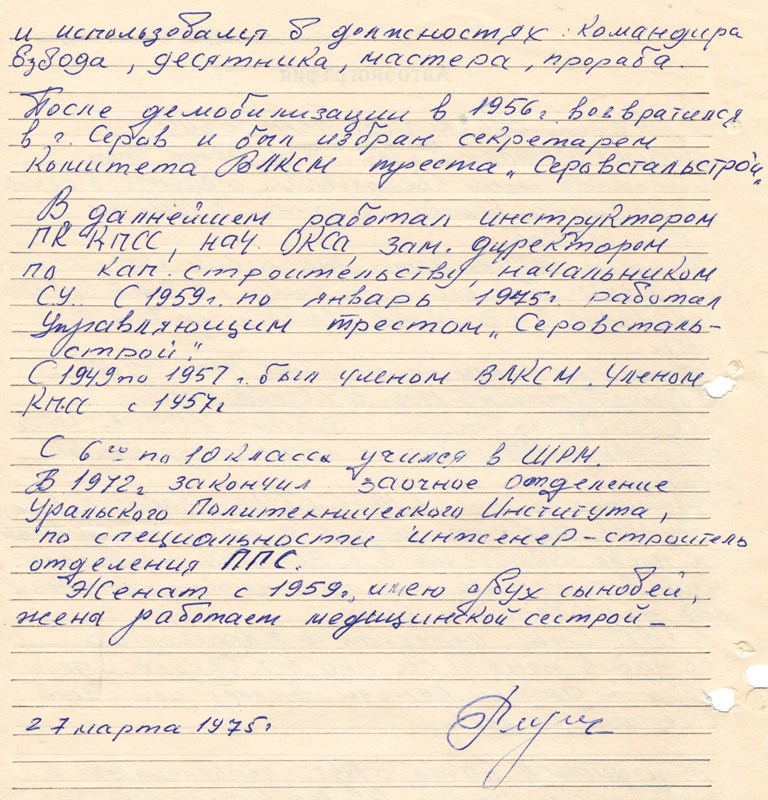 и использовался в должностях: командира
взвода, десятника, мастера, прораба.
После демобилизации в 1956г. возвратился
в г. Серов и был избран секретарем
комитета ВЛКСМ треста „Серовстальстрой“
В далнейшем работал инструктором
ГК КПСС, нач. ОКСа, зам. директором
по кап. строительству, начальником
СУ. С 1959г. по январь 1975г. работал
Управляющим трестом „Серовсталь-
строй“.
С 1949 по 1957 г. был членом ВЛКСМ. Членом
КПСС с 1957г
С 6го по 10 класса учился в ШРМ.
В 1972г закончил заочное отделение
Уральского Политехнического Института,
по специальности инженер-строитель
отделения ППС.
Женат с 1959г., имею двух сыновей,
жена работает медицинской сестрой –
27 марта 1975г